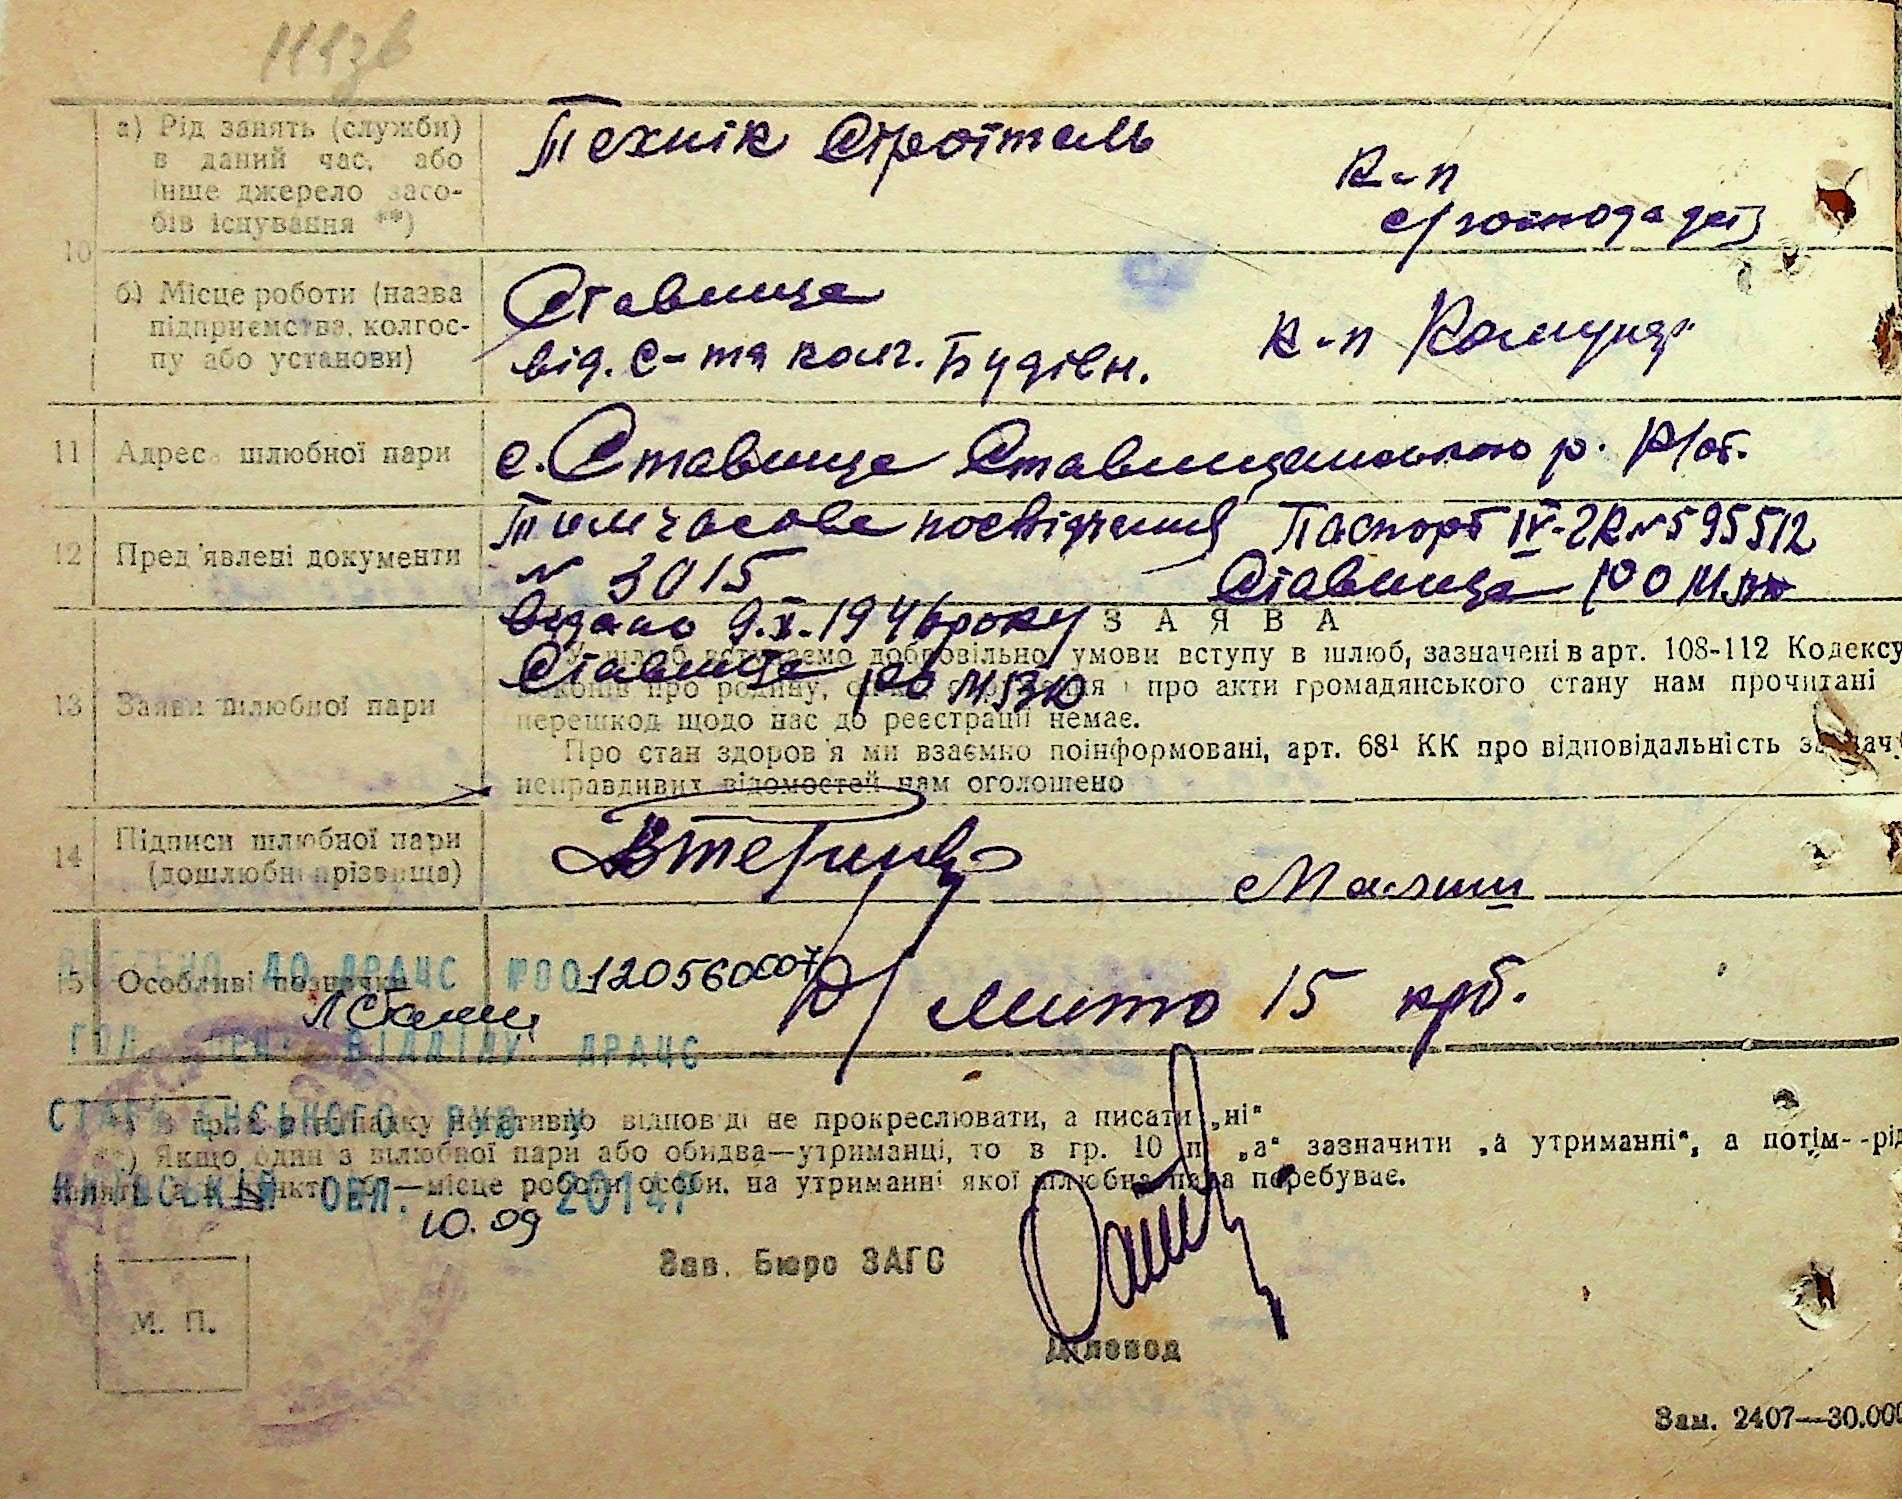 а) Рід занять (служби)
в даний час, або
інше джерело засо-
бів існування **)
Технік Строїтель
к-п
10
б) Місце роботи (назва
підприємства, колгос-
пу або установи)
Ставище
від. с- та колг. Будівн.
к-п
11 Адреса шлюбної пари
с. Ставище Ставищанського р. К/об.
12 Пред'явлені документи
Тимчасове посвідчення Паспорт IV-ЗК № 595512
№ 3015 Ставище РО МВД
видано 9.X.1946 року
Ставище РО МВД
13 Заяви шлюбної пари
ЗАЯВА
У шлюб вступаємо добровільно, умови вступу в шлюб, зазначені в арт. 108-112 Кодексу
законів про родину, про акти громадянського стану нам прочитані
перешкод щодо нас до реєстрації немає.
Про стан здоров'я ми взаємно поінформовані, арт. 68¹ КК про відповідальність за
неправдивих відомостей нам оголошено
14 Підписи шлюбної пари
(дошлюбні прізвища)
15 Особливі позначки
ВНЕСЕНО ДО ДРАЦС №00120560007
мито 15 крб.
ГОЛ. ВІДДІЛУ ДРАЦС
КИЇВСЬКІЙ ОБЛ. 2014р
10.09
*) в разі негативної відповіді не прокреслювати, а писати „ні"
**) Якщо один з шлюбної пари або обидва—утриманці, то в гр. 10 п. „а" зазначити „на утриманні", а потім--рід
занять, а в пункті „б"—місце роботи особи, на утриманні якої шлюбна пара перебуває.
Зав. Бюро ЗАГС
М. П.
Діловод
Зам. 2407—30.000